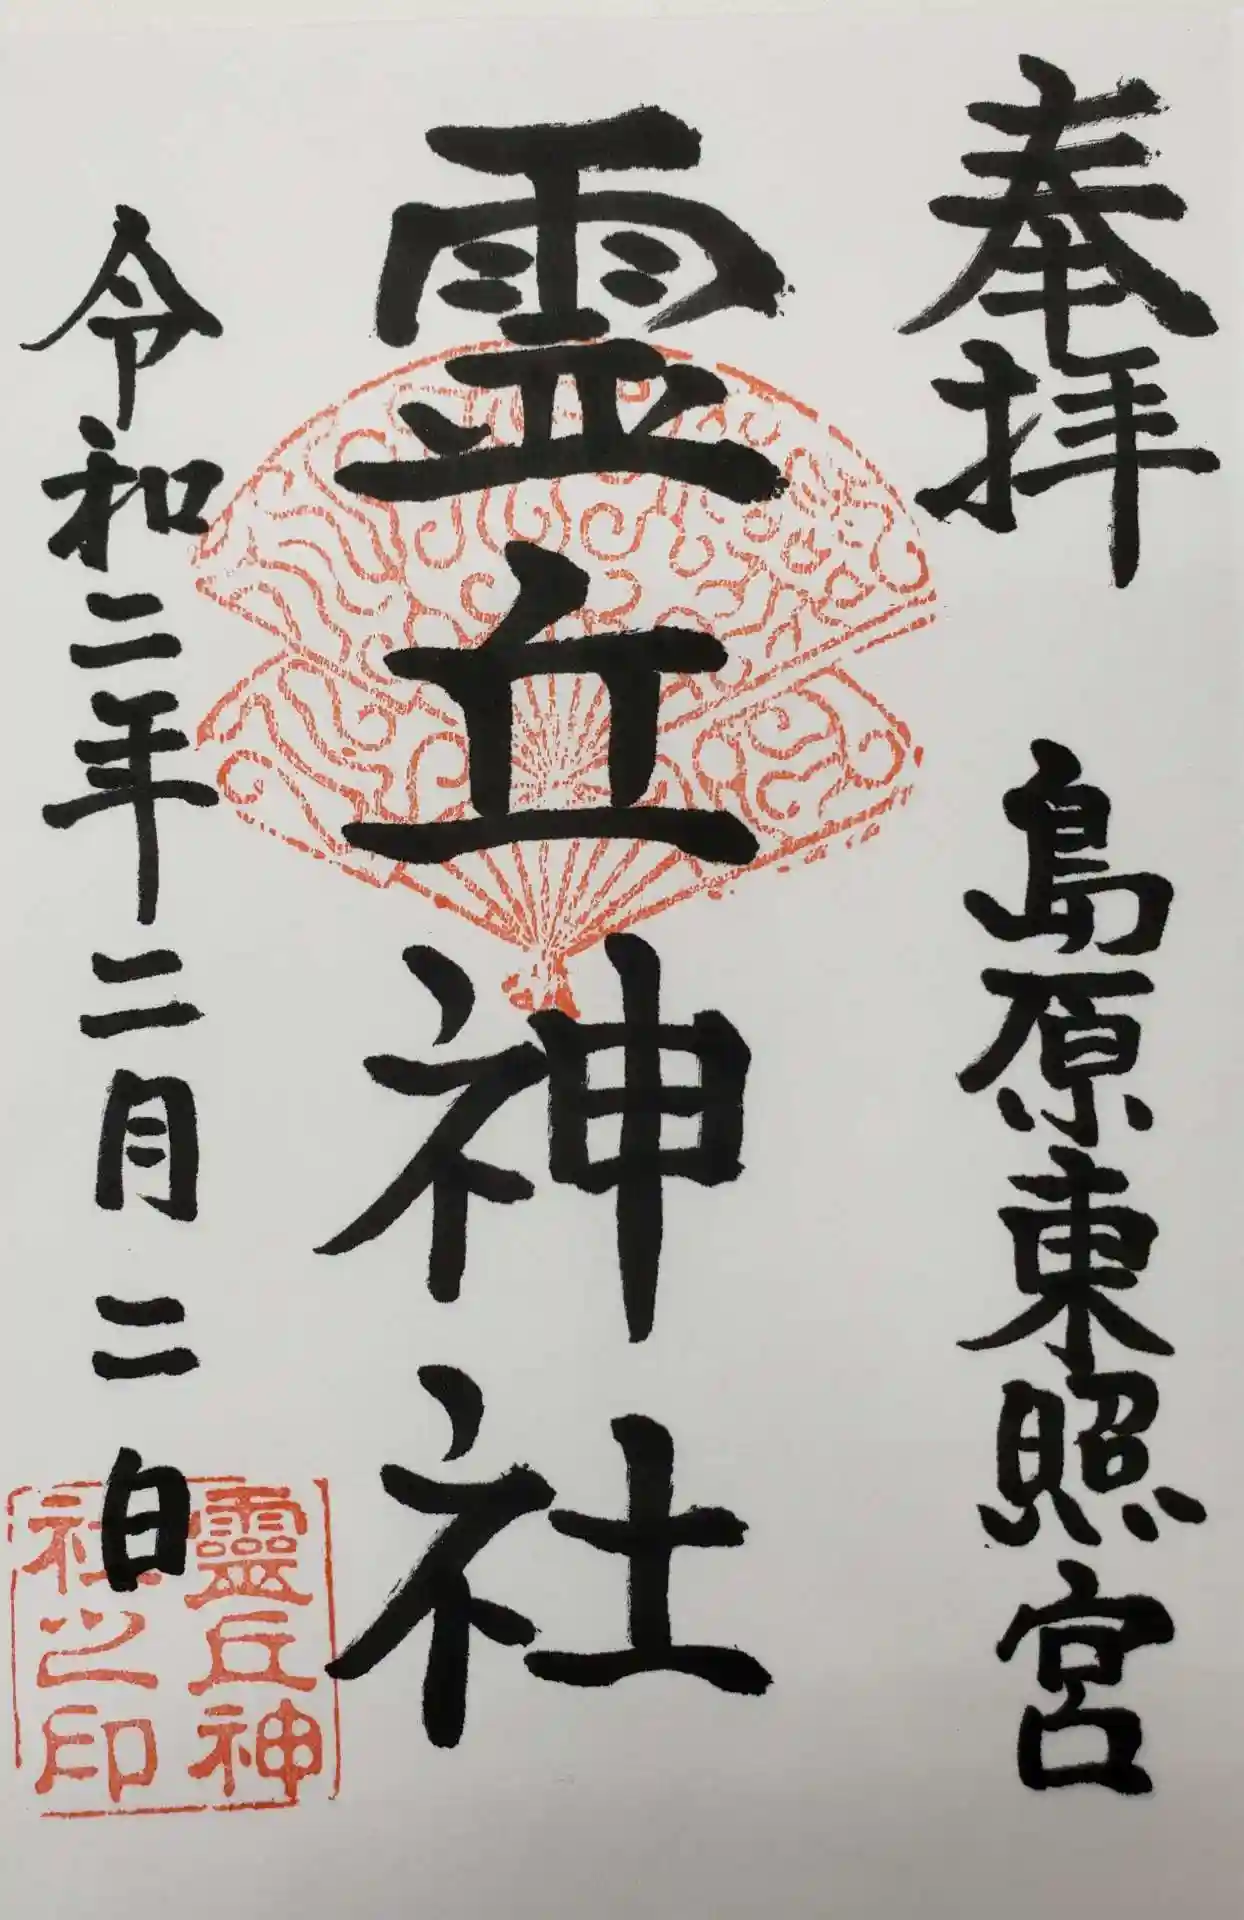 奉拝　島原東照宮
霊丘神社
令和二年二月二日
靈丘神
社之印